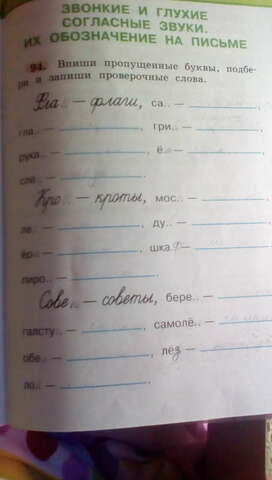 ЗВОНКИЕ И ГЛУХИЕ
СОГЛАСНЫЕ ЗВУКИ.
ИХ ОБОЗНАЧЕНИЕ НА ПИСЬМЕ
94. Впиши пропущенные буквы, подбе-
ри и запиши проверочные слова.
Фла.. — флаги, са.. —
гла.. — , гри.. —
рука.. — , ё.. —
сле.. — .
Кро.. — кроты, мос.. —
ле.. — , ду.. —
ёр.. — , шка.. —
пиро.. — .
Сове.. — советы, бере.. —
галсту.. — , самолё.. —
обе.. — , лёз —
ло.. — .